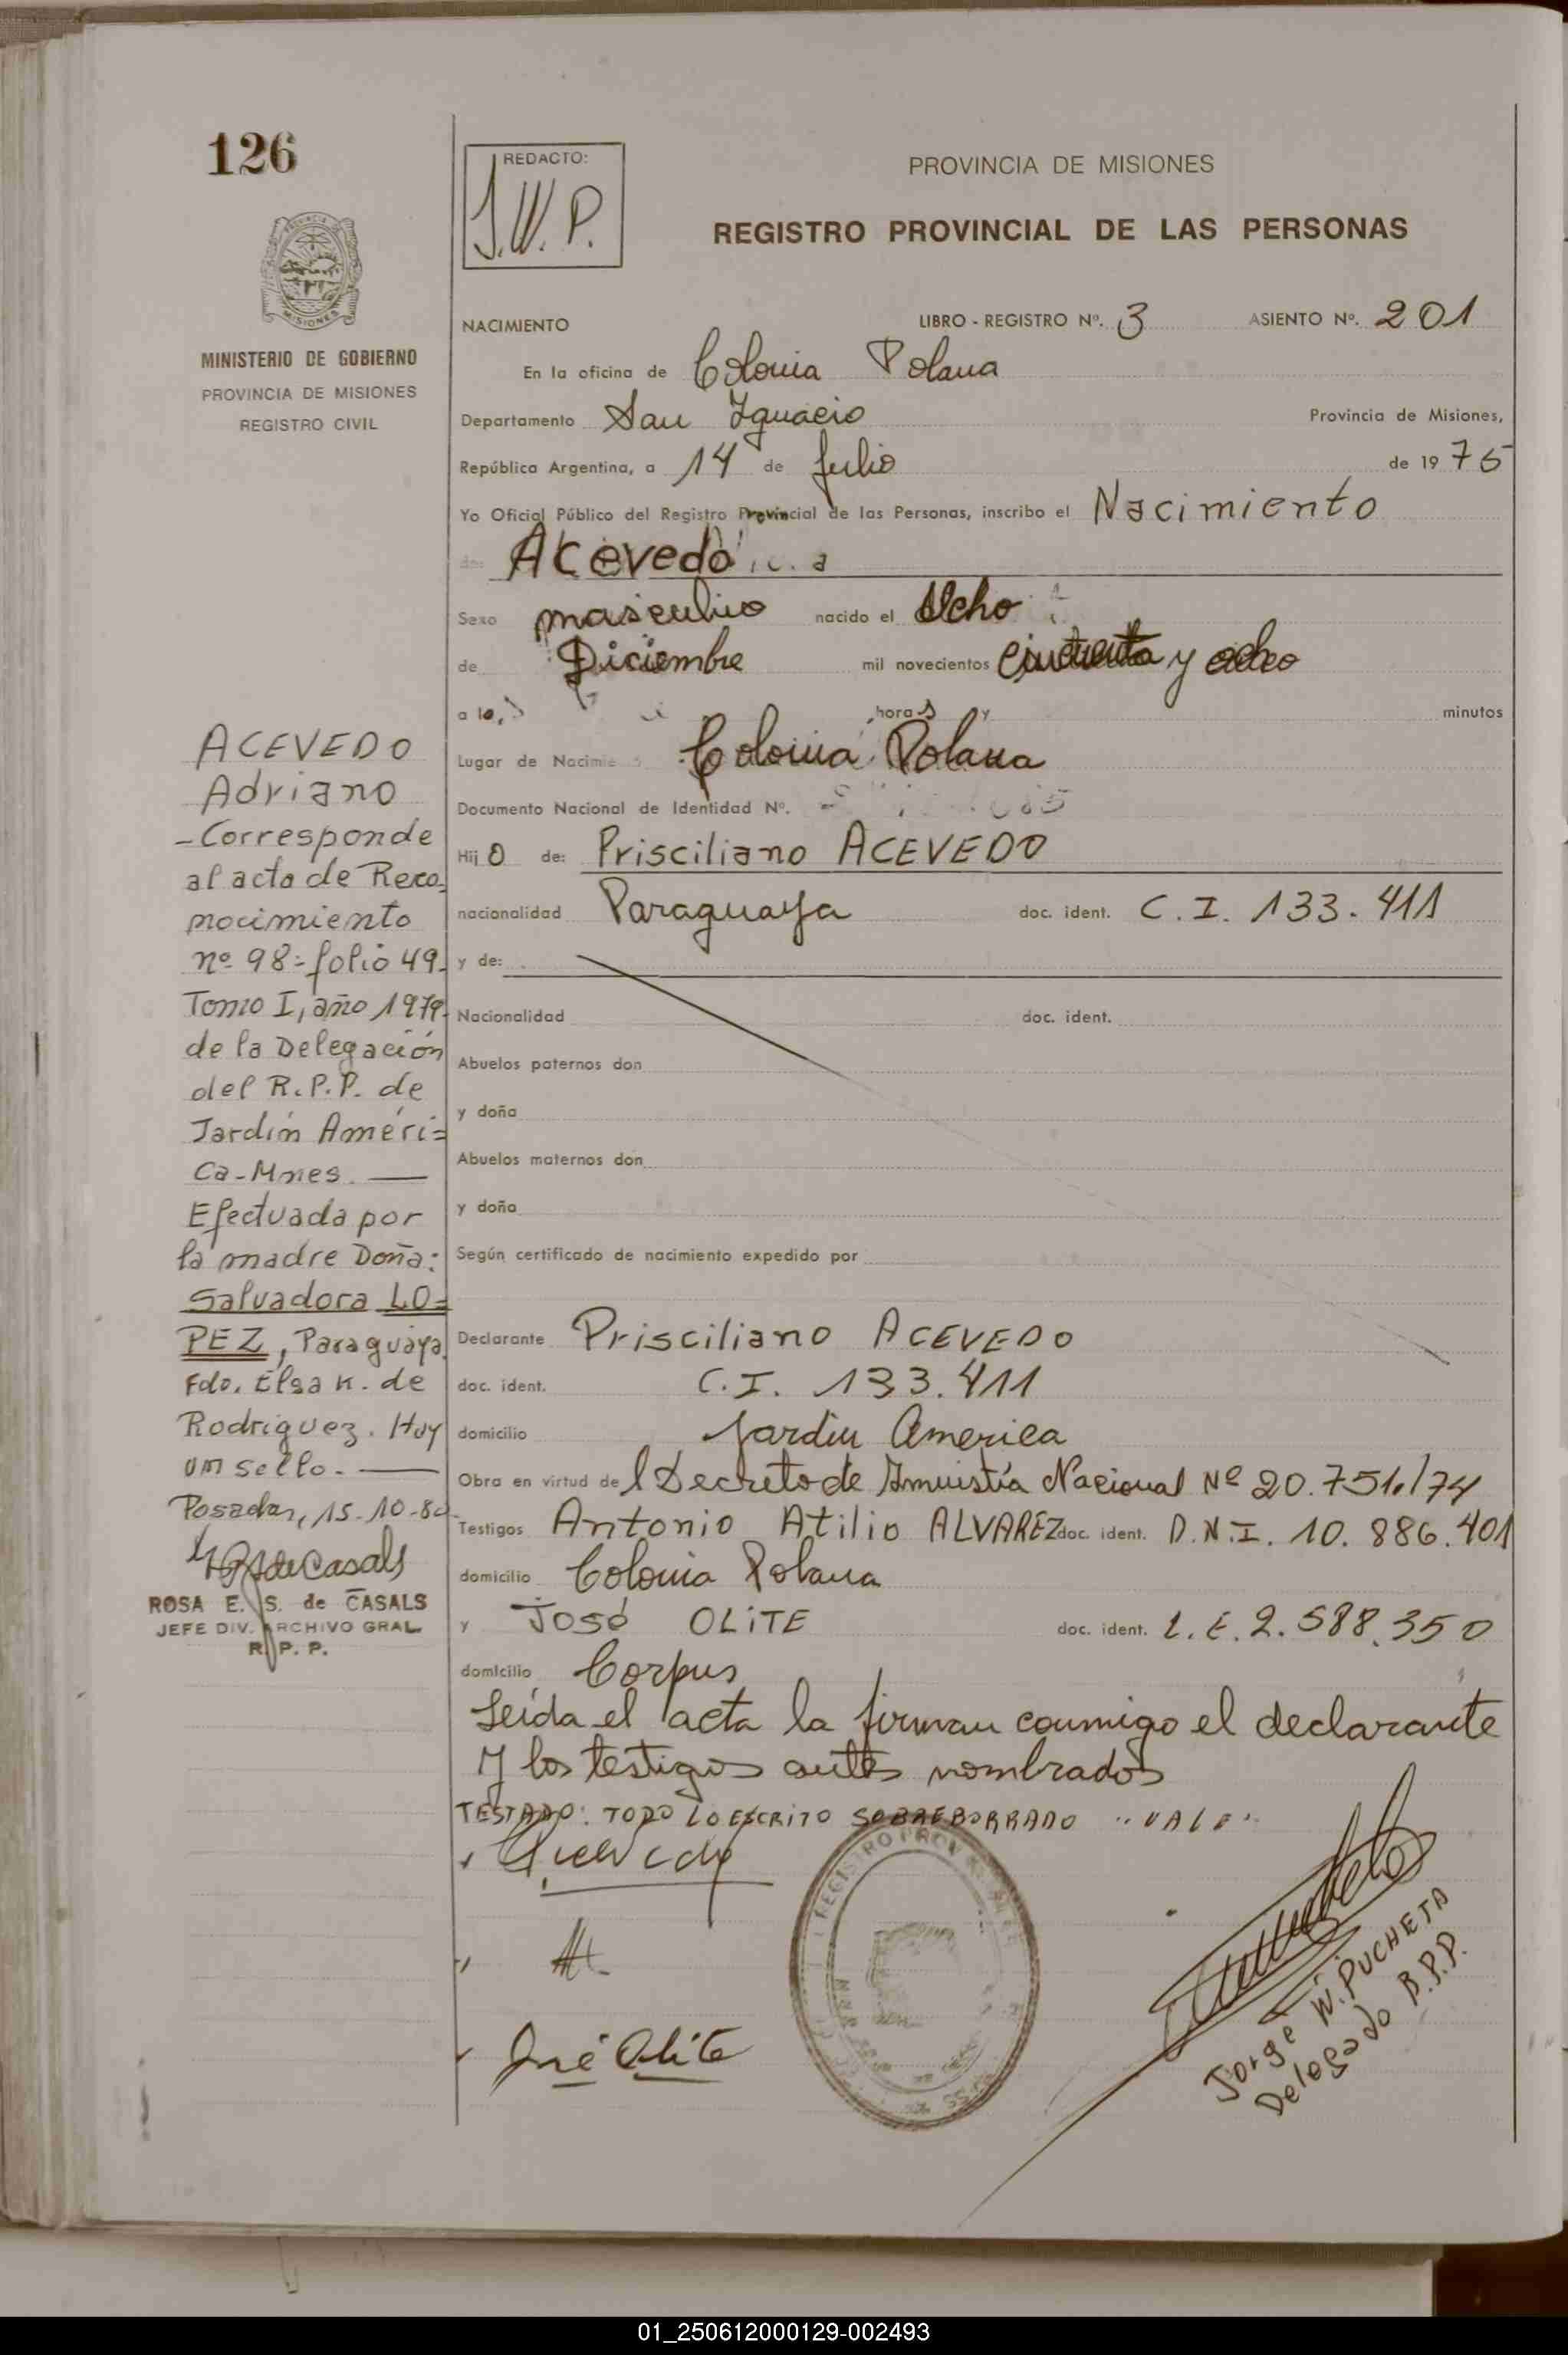 126
REDACTO:
J.W.P.
PROVINCIA DE MISIONES
REGISTRO PROVINCIAL DE LAS PERSONAS
MISIONES
MINISTERIO DE GOBIERNO
PROVINCIA DE MISIONES
REGISTRO CIVIL
NACIMIENTO LIBRO - REGISTRO Nº. 3 ASIENTO Nº. 201
En la oficina de Colonia Polana
Departamento San Ignacio Provincia de Misiones,
República Argentina, a 14 de Julio de 19 75
Yo Oficial Público del Registro Provincial de las Personas, inscribo el Nacimiento
de: Acevedo
Sexo masculino nacido el Ocho
de Diciembre mil novecientos cincuenta y ocho
a las horas y minutos
Lugar de Nacimie Colonia Polana
Documento Nacional de Identidad Nº.
Hij o de: Prisciliano ACEVEDO
nacionalidad Paraguaya doc. ident. C.I. 133.411
y de:
Nacionalidad doc. ident.
Abuelos paternos don
y doña
Abuelos maternos don
y doña
Según certificado de nacimiento expedido por
Declarante Prisciliano ACEVEDO
doc. ident. C.I. 133.411
domicilio Jardin America
Obra en virtud de l Decreto de Amnistía Nacional Nº 20.751./74
Testigos Antonio Atilio ALVAREZ doc. ident. D.N.I. 10.886.401
domicilio Colonia Polana
y José OLiTE doc. ident. L.E. 2.588.350
domicilio Corpus
Leída el acta la firman conmigo el declarante
y los testigos antes nombrados
TESTADO: TODO LO ESCRITO SOBREBORRADO "VALE"
José Olite
Jorge W. PUCHETA
Delegado R.P.P.
ACEVEDO
Adriano
-Corresponde
al acta de Reco-
nocimiento
nº 98-folio 49-
Tomo I, año 1979-
de la Delegación
del R.P.P. de
Jardín Améri=
ca-Mnes. —
Efectuada por
la madre Doña:
Salvadora LO=
PEZ, Paraguaya.
Fdo. Elsa K. de
Rodríguez. Hay
un sello. —
Posadas, 15-10-80
ROSA E. S. de CASALS
JEFE DIV. ARCHIVO GRAL
R. P. P.
01_250612000129-002493